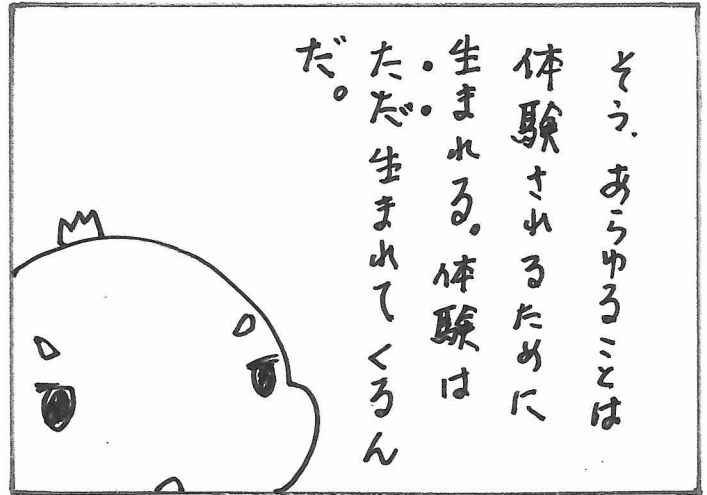 そう、あらゆることは
体験されるために
生まれる。体験は
ただ生まれてくるん
だ。